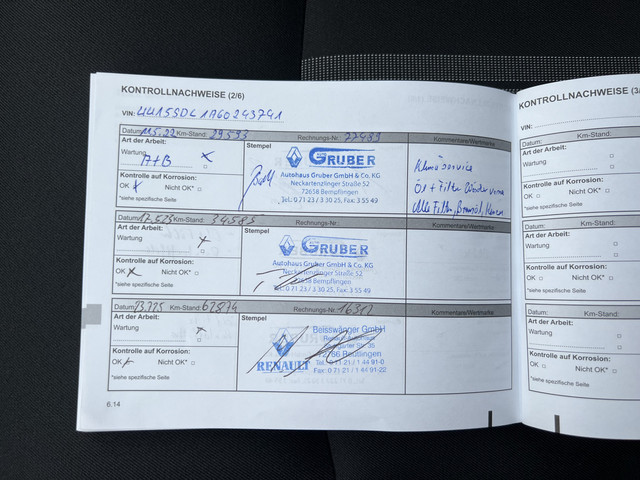 KONTROLLNACHWEISE (2/6)
VIN:
Datum: Km-Stand: 29593 Rechnungs-Nr. Kommentare/Wertmarke
Art der Arbeit:
Wartung
A+B
Kontrolle auf Korrosion:
OK Nicht OK*
*siehe spezifische Seite
Stempel
GRUBER
Autohaus Gruber GmbH & Co. KG
Neckartenzlinger Straße 52
72658 Bempflingen
Tel.: 0 71 23 / 3 30 25, Fax: 3 55 49
Klimaservice
Öl + Filter
Alle Filter,
Datum: Km-Stand: 34583 Rechnungs-Nr. Kommentare/Wertmarke
Art der Arbeit:
Wartung
Kontrolle auf Korrosion:
OK Nicht OK*
*siehe spezifische Seite
Stempel
GRUBER
Autohaus Gruber GmbH & Co. KG
Neckartenzlinger Straße 52
Bempflingen
Datum: Km-Stand: 67874 Rechnungs-Nr. Kommentare/Wertmarke
Art der Arbeit:
Wartung
Kontrolle auf Korrosion:
OK Nicht OK*
*siehe spezifische Seite
Stempel
RENAULT
Beisswänger GmbH
Reutlingen
6.14
KONTROLLNACHWEISE (3/
VIN:
Datum: Km-Stand:
Art der Arbeit:
Wartung
Kontrolle auf Korrosion:
OK Nicht OK*
*siehe spezifische Seite
Datum: Km-Stand:
Art der Arbeit:
Wartung
Kontrolle auf Korrosion:
OK Nicht OK*
*siehe spezifische Seite
Datum: Km-Stand:
Art der Arbeit:
Wartung
Kontrolle auf Korrosion:
OK Nicht OK*
*siehe spezifische Seite